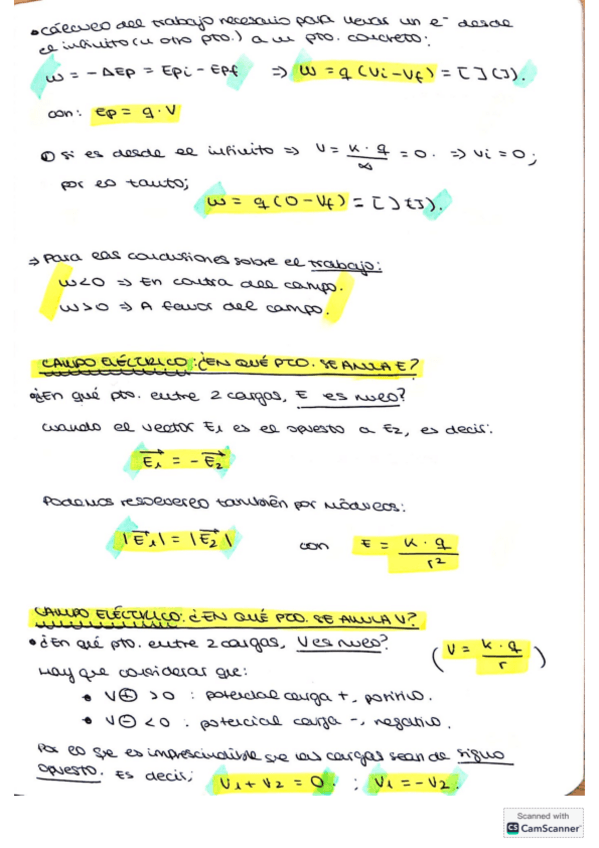 • Cálculo del trabajo necesario para llevar un e⁻ desde
el infinito (u otro pto.) a un pto. concreto:
W = -ΔEp = Epi - Epf ⇒ W = q (Vi - Vf) = [ ] (J).
con: Ep = q · V
① Si es desde el infinito ⇒ V = K · q / ∞ = 0. ⇒ Vi = 0;
por lo tanto;
W = q (0 - Vf) = [ ] (J).
⇒ Para las conclusiones sobre el trabajo:
W<0 ⇒ En contra del campo.
W>0 ⇒ A favor del campo.
CAMPO ELÉCTRICO: ¿EN QUÉ PTO. SE ANULA E?
•¿En qué pto. entre 2 cargas, E es nulo?
Cuando el vector E1 es el opuesto a E2, es decir:
E1 = - E2
Podemos resolverlo también por módulos:
|E1| = |E2| con E = K · q / r²
CAMPO ELÉCTRICO: ¿EN QUÉ PTO. SE ANULA V?
• ¿En qué pto. entre 2 cargas, V es nulo? (V = K · q / r)
Hay que considerar que:
• V⊕ >0 : potencial carga +, positivo.
• V⊖ <0 : potencial carga -, negativo.
Por lo que es imprescindible que las cargas sean de signo
opuesto. Es decir; V1 + V2 = 0. ; V1 = -V2.
Scanned with
CS CamScanner